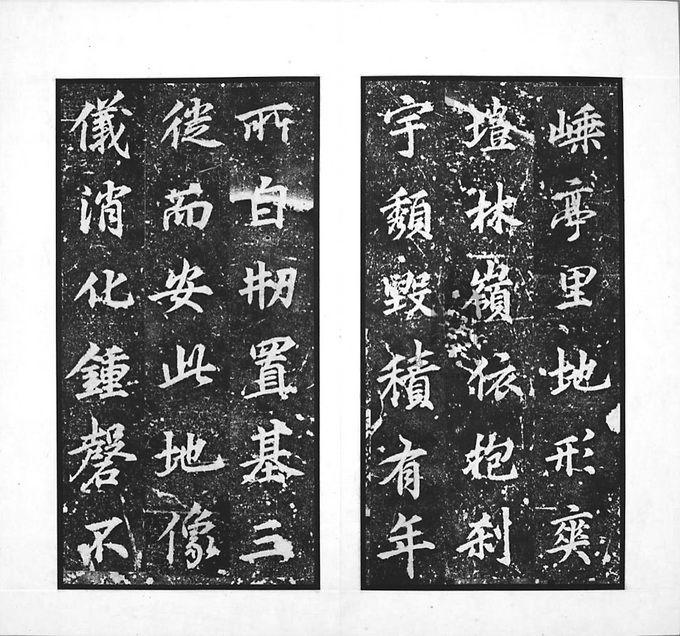 嵊亭里地形爽
塏林嶺依抱刹
宇頹毀積有年
所自剏置基三
徙而安此地像
儀消化鍾磬不